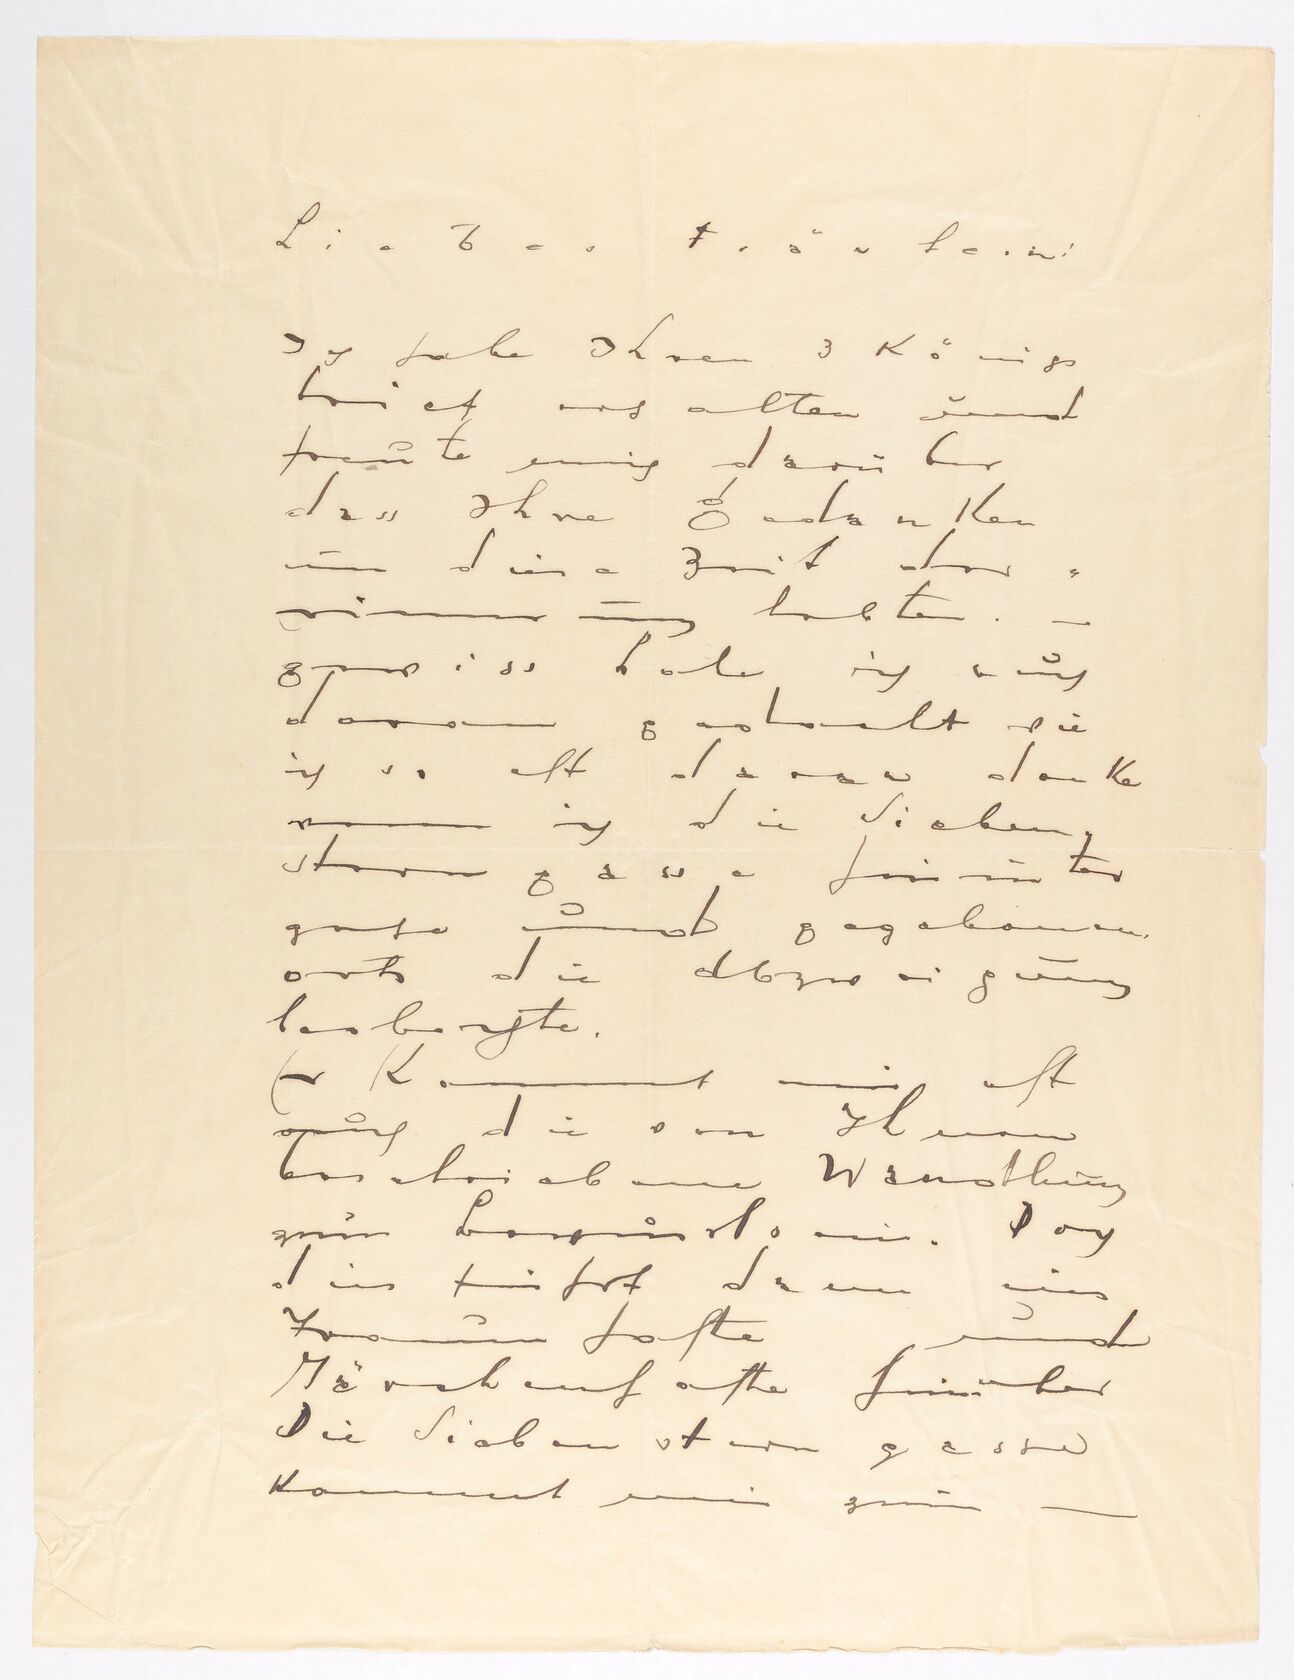 Liebes Fräulein!
Ich habe Ihren 3 Königs
brief erhalten und
freute mich darüber
dass Ihre Gedanken
um diese Zeit der e
rinnerung lebten. —
gewiss habe ich auch
daran gedacht wie
ich so oft daran denke
wenn ich die Sieben
sterngasse hinunter
gehe und gegebenen
orts die Abzweigung
beobachte.
Er kommt mir oft
auch die von Ihnen
beschriebene Wandlung
zum Doch
dies führt dann ins
Traumhafte und
Märchenhafte hinüber
Die Siebensterngasse
kommt mir zum —